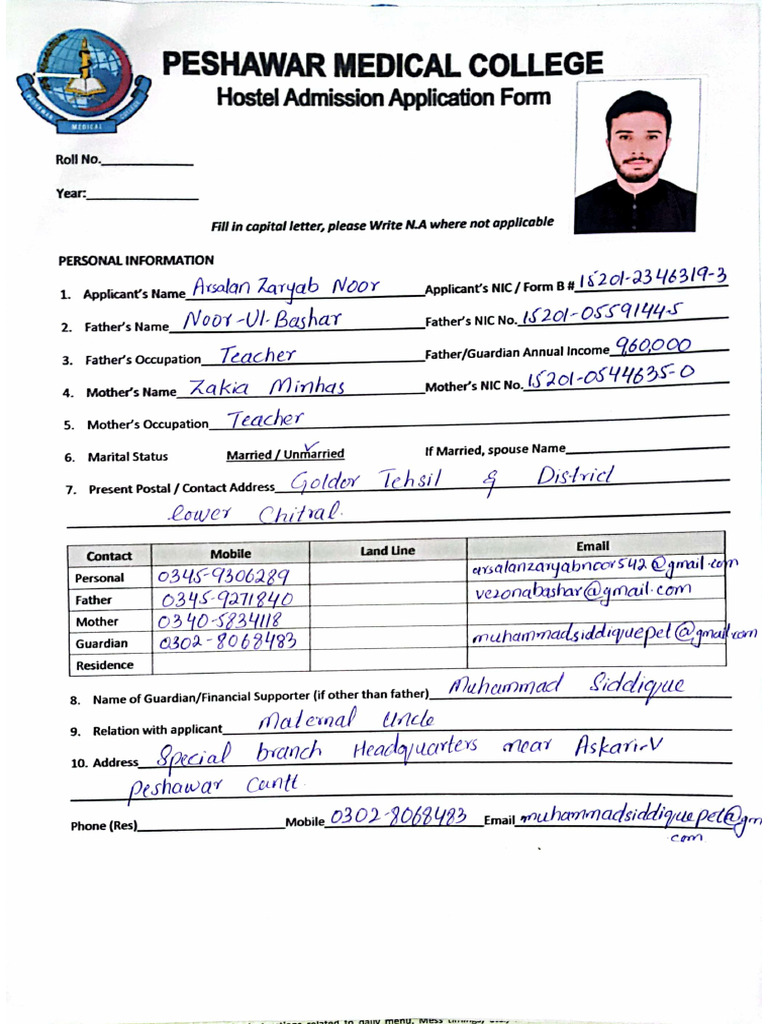 PESHAWAR MEDICAL COLLEGE
Hostel Admission Application Form
PESHAWAR MEDICAL COLLEGE
Roll No.
Year:
Fill in capital letter, please Write N.A where not applicable
PERSONAL INFORMATION
1. Applicant's Name Arsalan Zaryab Noor Applicant's NIC / Form B # 15201-2346319-3
2. Father's Name Noor-Ul-Bashar Father's NIC No. 15201-0559144-5
3. Father's Occupation Teacher Father/Guardian Annual Income 960,000
4. Mother's Name Zakia Minhas Mother's NIC No. 15201-0544635-0
5. Mother's Occupation Teacher
6. Marital Status Married / Unmarried ✓ If Married, spouse Name
7. Present Postal / Contact Address Goldor Tehsil & District
lower Chitral.
Contact Mobile Land Line Email
Personal 0345-9306289 arsalanzaryabnoor542@gmail.com
Father 0345-9271840 vezonabashar@gmail.com
Mother 0340-5834118
Guardian 0302-8068483 muhammadsiddiquepet@gmail.com
Residence
8. Name of Guardian/Financial Supporter (if other than father) Muhammad Siddique
9. Relation with applicant Maternal Uncle
10. Address Special branch Headquarters near Askari-V
Peshawar Cantt.
Phone (Res) Mobile 0302-8068483 Email muhammadsiddiquepet@gm
.com
related to daily menu, Mess timings, etc.